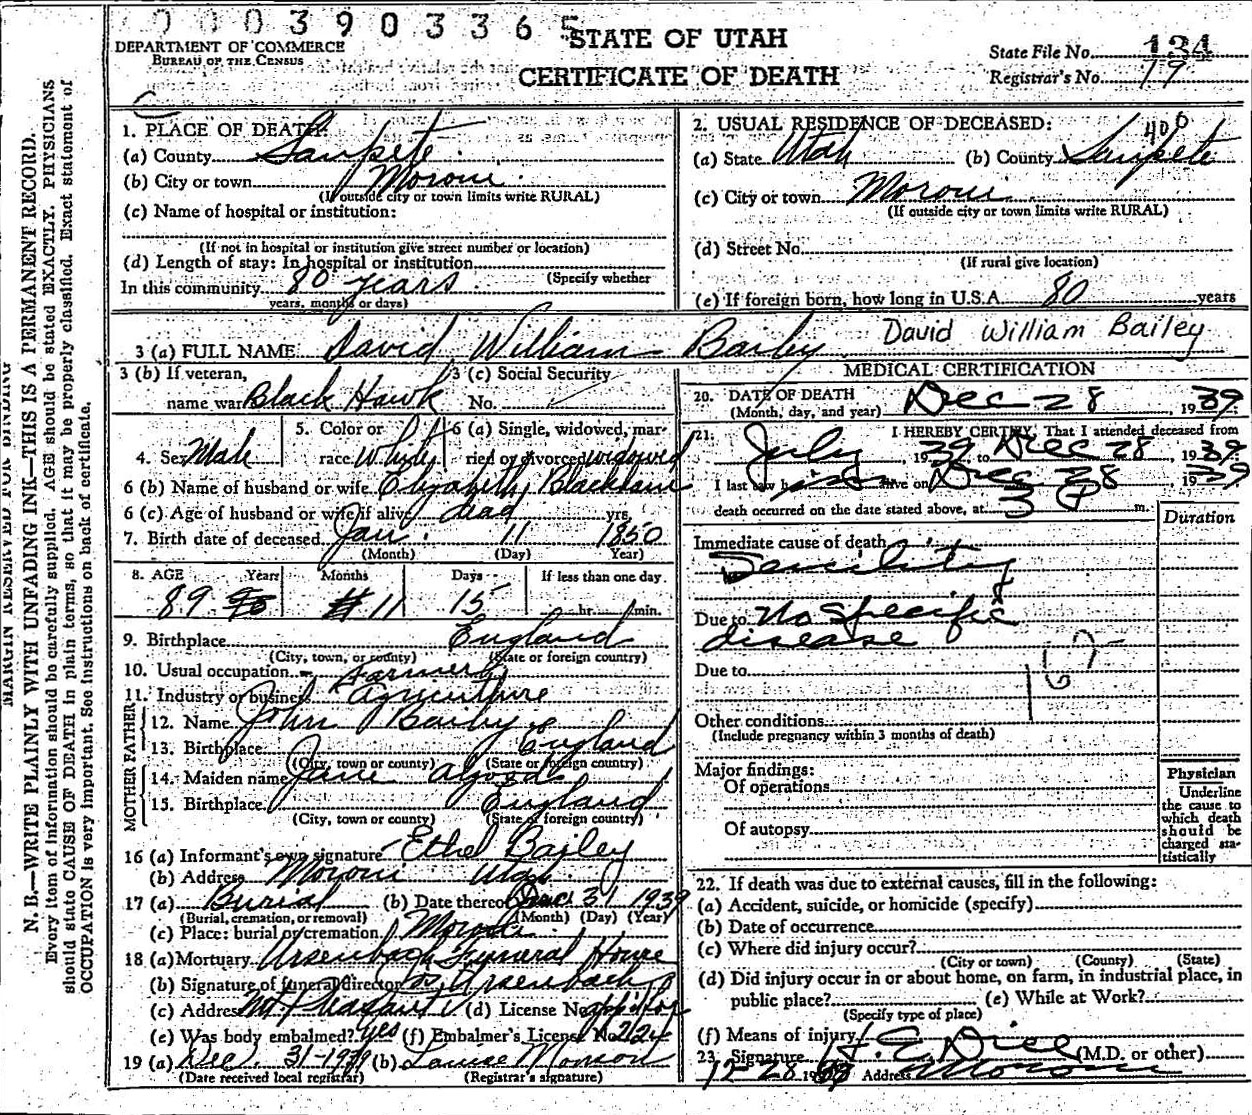 0003903365
DEPARTMENT OF COMMERCE
BUREAU OF THE CENSUS
STATE OF UTAH
CERTIFICATE OF DEATH
State File No. 134
Registrar's No. 19
MARGIN RESERVED FOR BINDING
N. B.—WRITE PLAINLY WITH UNFADING INK—THIS IS A PERMANENT RECORD.
Every item of information should be carefully supplied. AGE should be stated EXACTLY. PHYSICIANS
should state CAUSE OF DEATH in plain terms, so that it may be properly classified. Exact statement of
OCCUPATION is very important. See instructions on back of certificate.
1. PLACE OF DEATH:
(a) County Sanpete
(b) City or town Moroni
(If outside city or town limits write RURAL)
(c) Name of hospital or institution:
(If not in hospital or institution give street number or location)
(d) Length of stay: In hospital or institution
(Specify whether
In this community 80 years
years, months or days)
2. USUAL RESIDENCE OF DECEASED:
400
(a) State Utah (b) County Sanpete
(c) City or town Moroni
(If outside city or town limits write RURAL)
(d) Street No.
(If rural give location)
(e) If foreign born, how long in U.S.A. 80 years
3 (a) FULL NAME David William Bailey David William Bailey
3 (b) If veteran, name war Black Hawk
3 (c) Social Security No.
4. Sex Male
5. Color or race White
6 (a) Single, widowed, married or divorced widowed
6 (b) Name of husband or wife Elizabeth Blackham
6 (c) Age of husband or wife if alive dead yrs.
7. Birth date of deceased Jan. 11 1850
(Month) (Day) Year)
8. AGE Years Months Days If less than one day
89 11 15 hr. min.
9. Birthplace England
(City, town, or county) (State or foreign country)
10. Usual occupation Farmer
11. Industry or business Agriculture
FATHER
12. Name John Bailey
13. Birthplace England
(City, town or county) (State or foreign country)
MOTHER
14. Maiden name Jane Algood
15. Birthplace England
(City, town or county) (State or foreign country)
16 (a) Informant's own signature Ethel Bailey
(b) Address Moroni Utah
17 (a) Burial (b) Date thereof Dec 31 1939
(Burial, cremation, or removal) (Month) (Day) (Year)
(c) Place: burial or cremation Moroni
18 (a) Mortuary Ursenbach Funeral Home
(b) Signature of funeral director Ursenbach
(c) Address Mt. Pleasant (d) License No.
(e) Was body embalmed? yes (f) Embalmer's License No. 224
19 (a) Dec. 31-1939 (b) Louise Monson
(Date received local registrar) (Registrar's signature)
MEDICAL CERTIFICATION
20. DATE OF DEATH
(Month, day, and year) Dec 28, 1939
21. I HEREBY CERTIFY, That I attended deceased from
July, 1939, to Dec 28, 1939
I last saw him alive on Dec 28, 1939
death occurred on the date stated above, at 3 P m.
Duration
Immediate cause of death
Senility
Due to No specific
disease
Due to
Other conditions
(Include pregnancy within 3 months of death)
Major findings:
Of operations
Of autopsy
Physician
Underline
the cause to
which death
should be
charged sta-
tistically
22. If death was due to external causes, fill in the following:
(a) Accident, suicide, or homicide (specify)
(b) Date of occurrence
(c) Where did injury occur?
(City or town) (County) (State)
(d) Did injury occur in or about home, on farm, in industrial place, in
public place? (e) While at Work?
(Specify type of place)
(f) Means of injury
23. Signature H. E. Dice (M.D. or other)
12-28 1939 Address Moroni